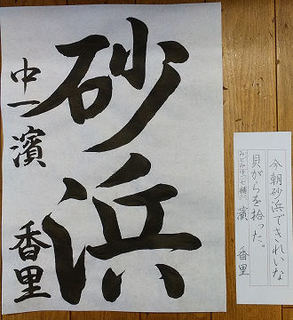 砂浜
中一 濱 香里
今朝砂浜できれいな
貝がらを拾った。
濱 香里